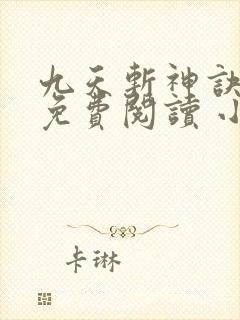 九天斬神訣
免費閱讀 小
卡琳